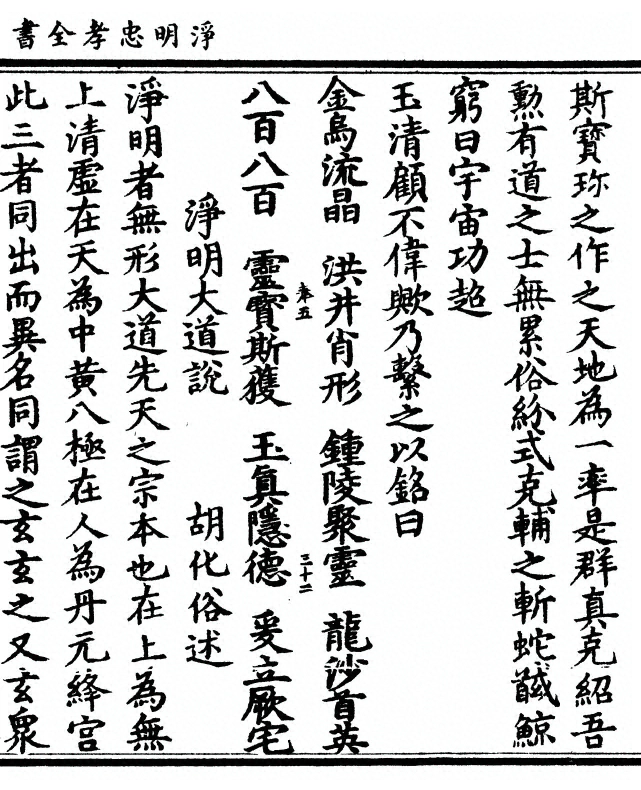 淨明忠孝全書
斯寶珎之作之天地為一率是群真克紹吾
勲有道之士無累俗紛式克輔之斬蛇馘鯨
窮日宇宙功超
玉清顧不偉歟乃繫之以銘曰
金烏流晶　洪井肖形　鍾陵聚靈　龍沙首英
八百八百　靈寶斯獲　玉眞隱德　爰立厥宅
卷五
三十二
淨明大道說　胡化俗述
淨明者無形大道先天之宗本也在上為無
上清虛在天為中黃八極在人為丹元絳宮
此三者同出而異名同謂之玄玄之又玄衆